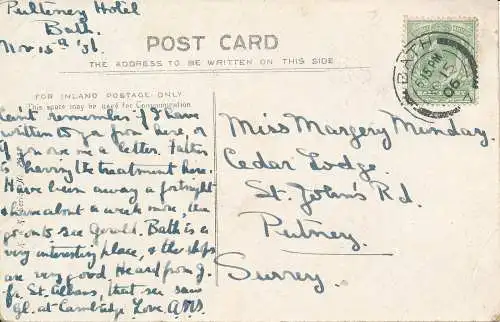 Pulteney Hotel
Bath.
Nov 15th
POST CARD
THE ADDRESS TO BE WRITTEN ON THIS SIDE
FOR INLAND POSTAGE ONLY
This space may be used for Communication
BATH
15 PM
06
Can't remember if I have
written to you from here, or
if you owe me a letter. Father
is having the treatment here.
Have been away a fortnight
& have about a week more, then
go on to see Gerald. Bath is a
very interesting place, & the shops
are very good. Heard from J.
fr. St. Albans, that she saw
Gl. at Cambridge Love,
Miss Margery Munday.
Cedar Lodge.
St. John's Rd.
Putney.
Surrey.